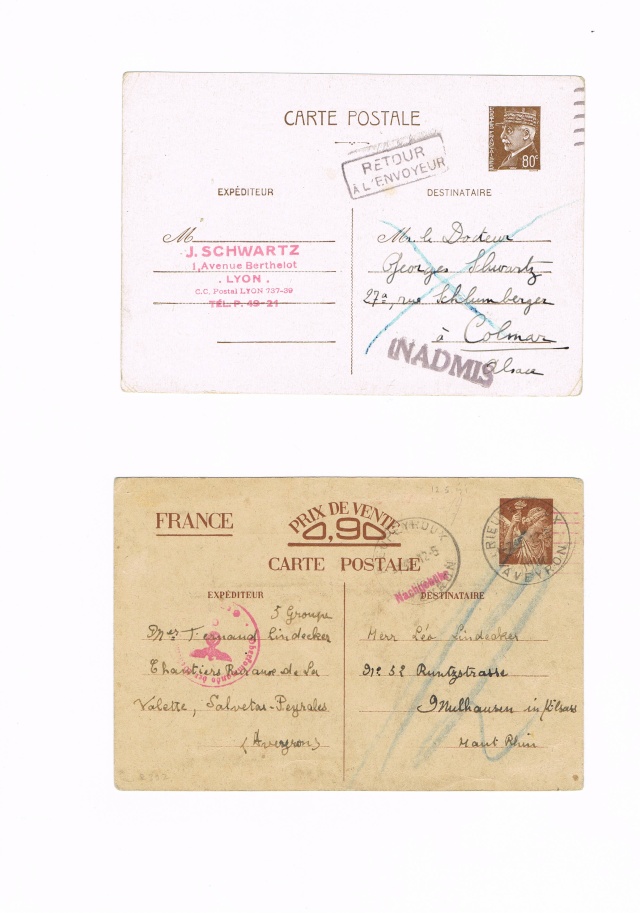 CARTE POSTALE
80c
RETOUR
À L'ENVOYEUR
EXPÉDITEUR
DESTINATAIRE
M
J. SCHWARTZ
1, Avenue Berthelot
. LYON .
C.C. Postal LYON 737-39
TÉL. P. 49-21
Mr. le Docteur
Georges Schwartz
27a, rue Schlumberger
à Colmar
Alsace
INADMIS
12.5.41
FRANCE
PRIX DE VENTE
0,90
CARTE POSTALE
AVEYRON
12-5
Nachgebühr
EXPÉDITEUR
DESTINATAIRE
5 Groupe
Fernand Lindecker
Chantiers de La
Valette, Salvetas-Peyrales
(Aveyron)
Herr Léo Lindecker
52 Runtzstrasse
Mulhausen in/Elsass
Haut Rhin